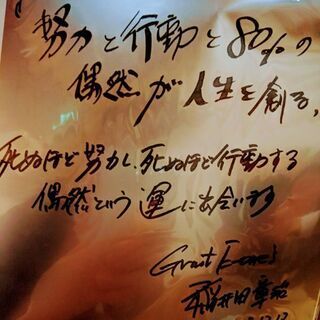 努力と行動と80%の
偶然が人生を創る,
死ぬほど努力し、死ぬほど行動する
偶然という運に出会います